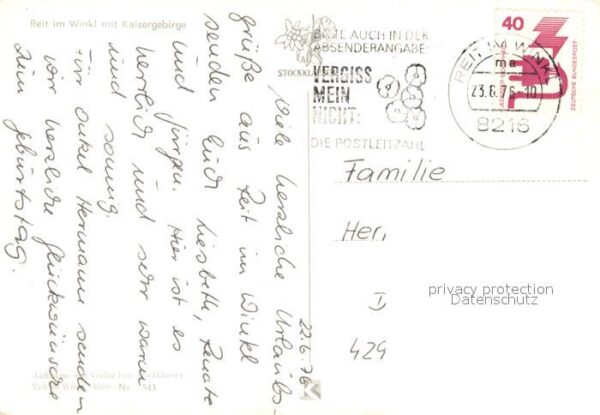 Reit im Winkl mit Kaisergebirge
22.6.76
Viele herzliche Urlaubs-
grüße aus Reit im Winkl
senden Euch Liesbeth, Renate
und Jürgen. Hier ist es
herrlich und sehr warm
und sonnig.
Für Onkel Hermann senden
wir herzliche Glückwünsche
zum Geburtstag.
STOCKKL
BITTE AUCH IN DER
ABSENDERANGABE:
VERGISS
MEIN
NICHT:
DIE POSTLEITZAHL
REIT IM WINKL
ma
23.6.76-10
8216
40
DEUTSCHE BUNDESPOST
Familie
Her
D
429
privacy protection
Datenschutz
Aufnahme und Verlag Foto Stockklauser
Reit im Winkl Motiv Nr. 543